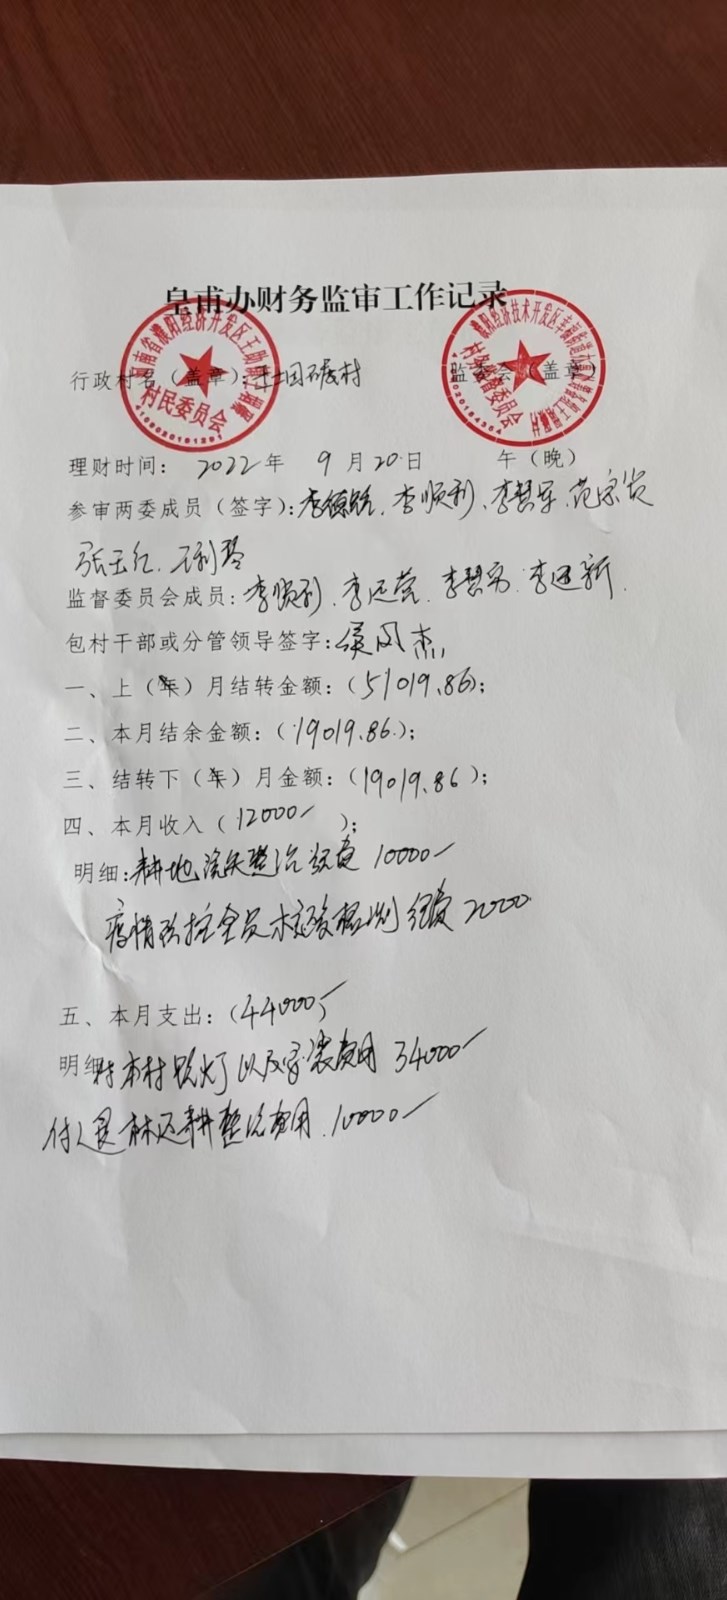 皇甫办财务监审工作记录
行政村名（盖章）：王固碾村 监委会（盖章）
村民委员会
4109020181391
村务监督委员会
理财时间： 2022年 9月20日 午（晚）
参审两委成员（签字）：李德路、李顺利、李慧军、范宗岗
张玉红、
监督委员会成员：李顺利、李运营、李慧勇、李进新
包村干部或分管领导签字：侯凤杰
一、上（年）月结转金额：（51019.86）；
二、本月结余金额：（19019.86）；
三、结转下（年）月金额：（19019.86）；
四、本月收入（12000 ）；
明细：耕地流失整治经费 10000
疫情防控全员核酸检测经费 2000
五、本月支出：（44000）
明细：付本村路灯以及安装费用 34000
付退林还耕整治费用 10000